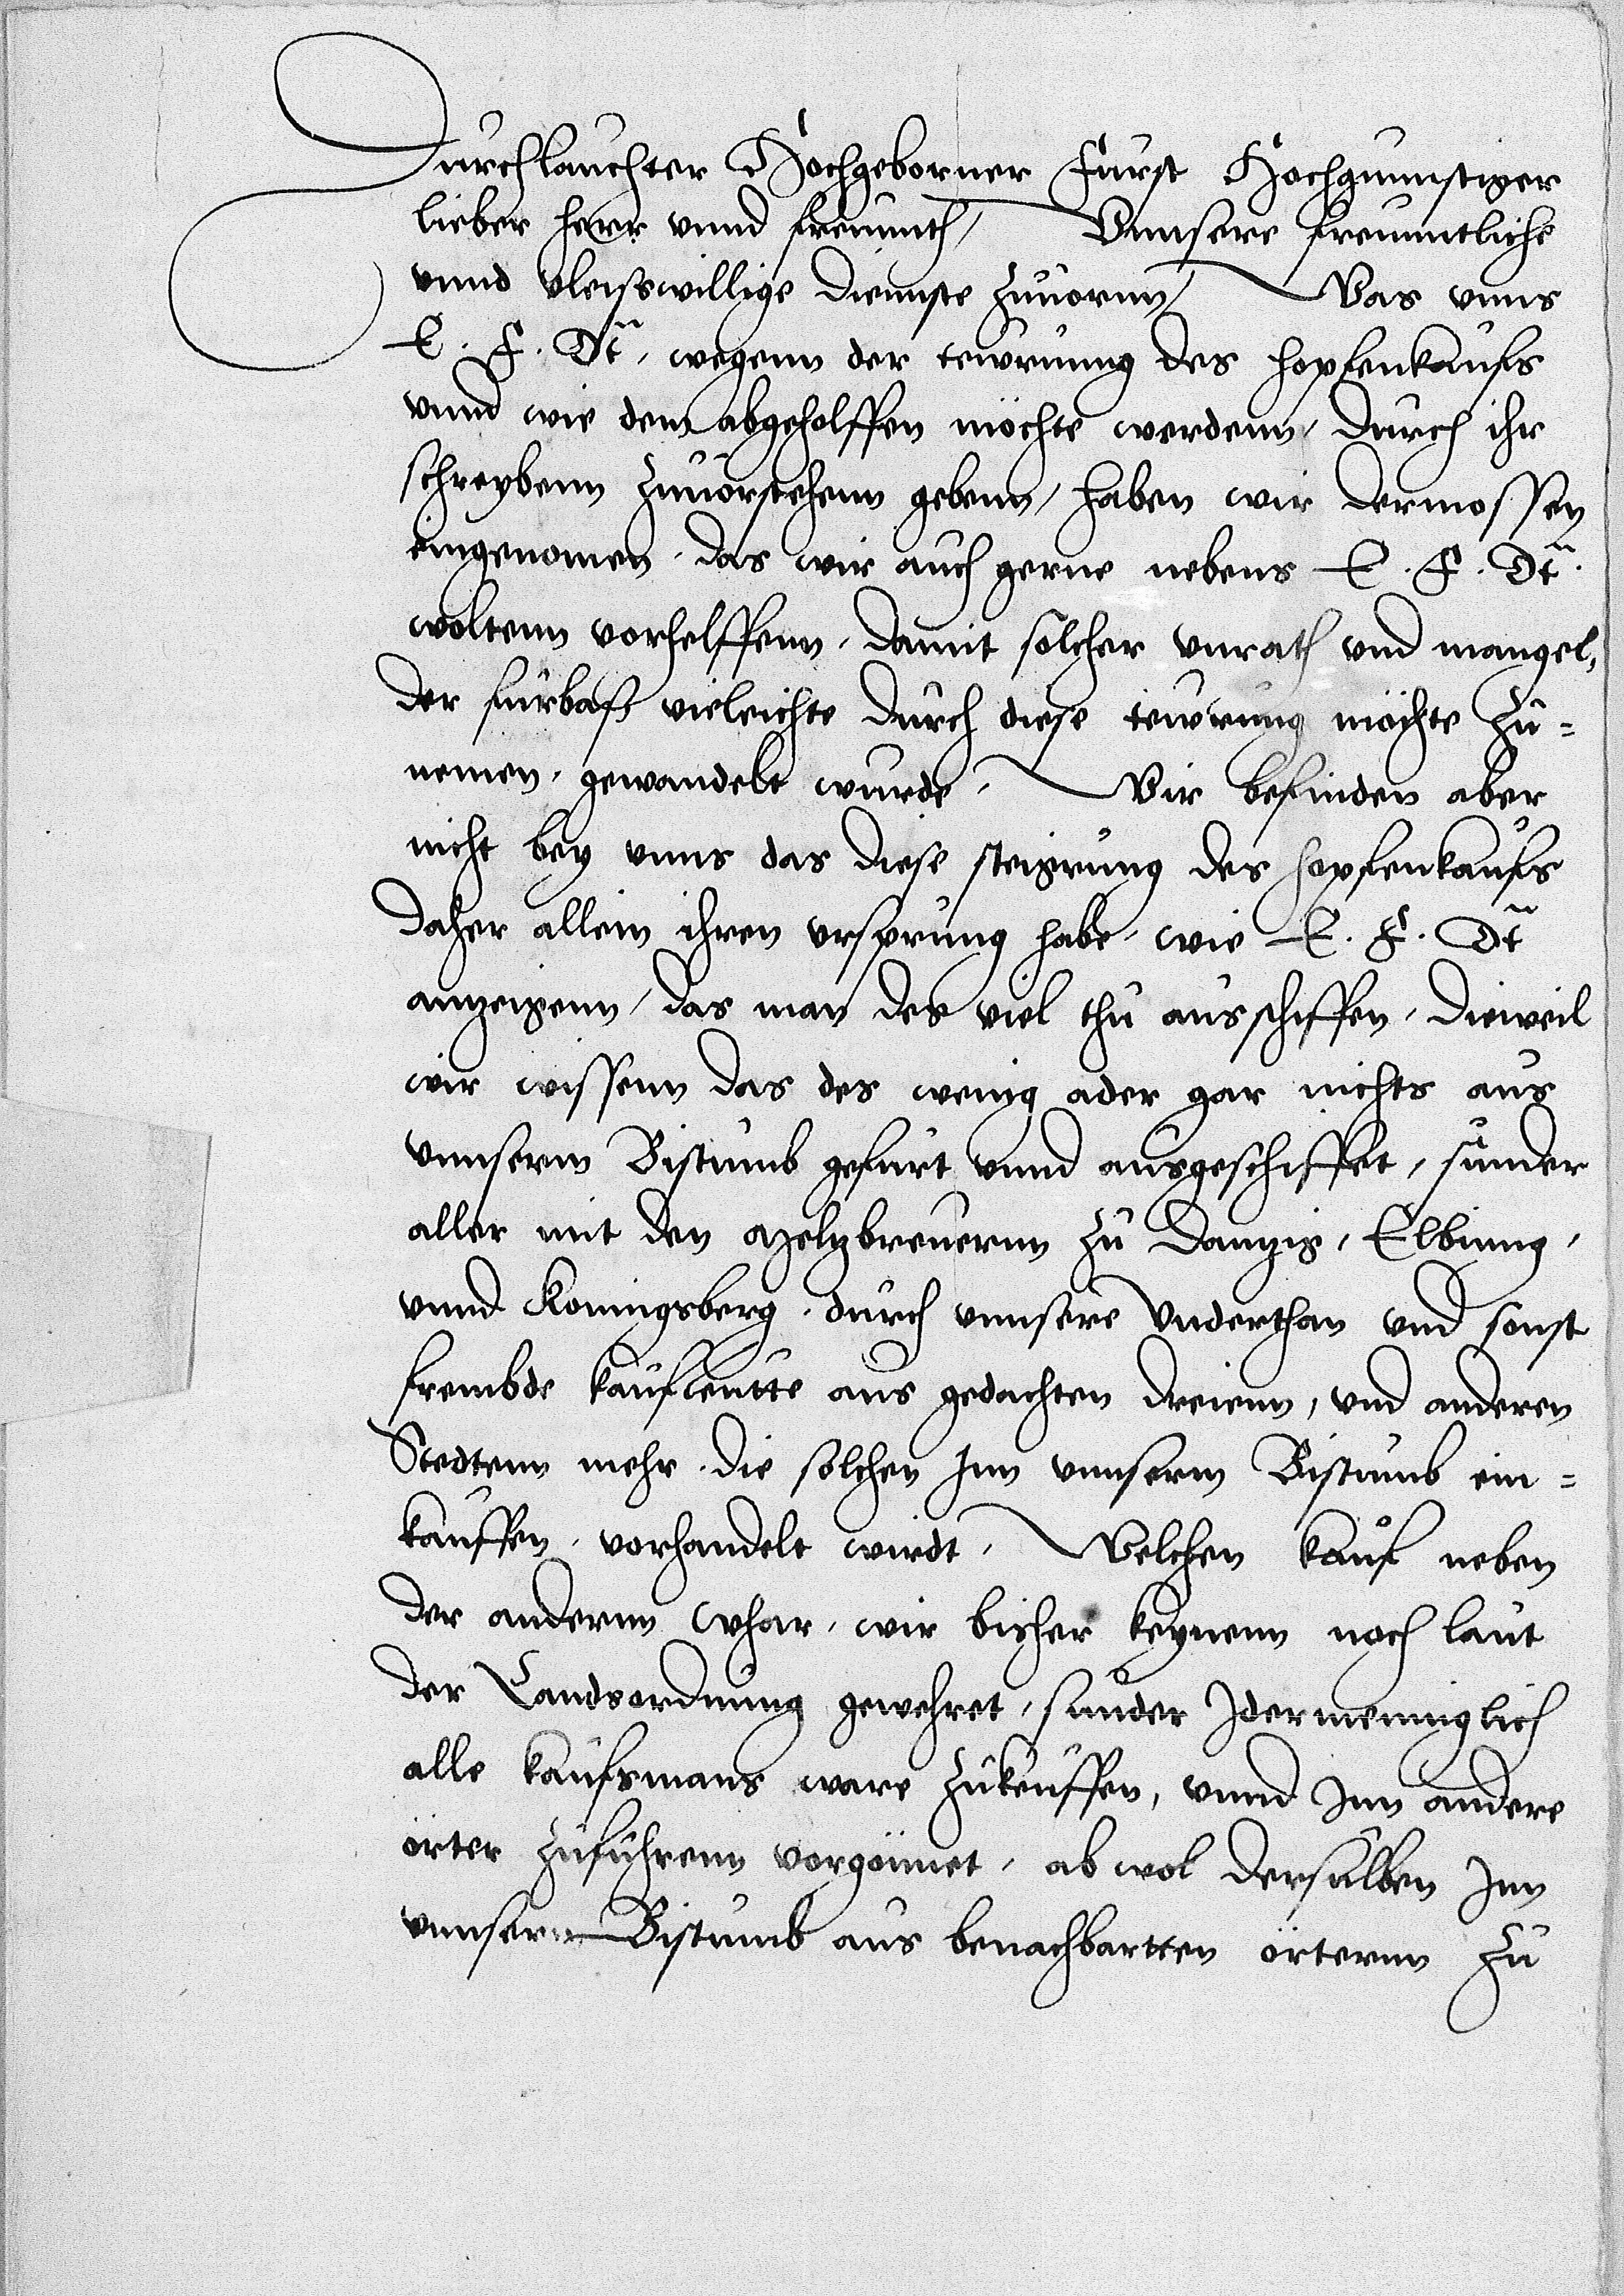 Durchlauchter Hochgeborner Furst Hochgunnstiger
lieber herr vnnd freunnth, Vnnsere freunntliche
vnnd vleiswillige diennste zuuornn, Was vnns
E. F. Dt, wegenn der tewrung des hopfenkaufs
vnnd wie dem abgeholffen möchte werdenn, durch ihr
schreybenn zuuorstehenn gebenn, haben wir dermossen
eingenomen, das wir auch gerne nebens E. F. Dt.
woltenn vorhelffenn, damit solcher vnrath vnd mangel,
der furbaß vieleichte durch diese tewrung möchte zu-
nemen, gewandelt wurde, Wir befinden aber
nicht bey vnns das diese steigrung des hopfenkaufs
daher allein ihren vrsprung habe, wie E. F. Dt
anzeigenn, das man des viel thu ausschiffen, dieweil
wir wissenn das des wenig ader gar nichts aus
vnnserm Bistumb gefurt vnnd ausgeschiffet, sunder
aller mit den Melzbreuernn zu Danzig, Elbinng,
vnnd Koningsberg, durch vnnsere Vnderthan vnd sonst
frembde kaufleutte aus gedachten dreienn, vnd anderen
Stedtenn mehr, die solchen Inn vnnserm Bistumb ein-
kauffen, vorhandelt wirdt, Welchen kauf neben
der andernn whar, wir bisher keynenn nach laut
der Landsordnung gewehret, sunder Idermenniglich
alle kaufsmans ware zukeuffen, vnnd Inn andere
örter zufuhrenn vorgönnet, ab wol derselben Inn
vnnserm Bistumb aus benachbartten örternn zu